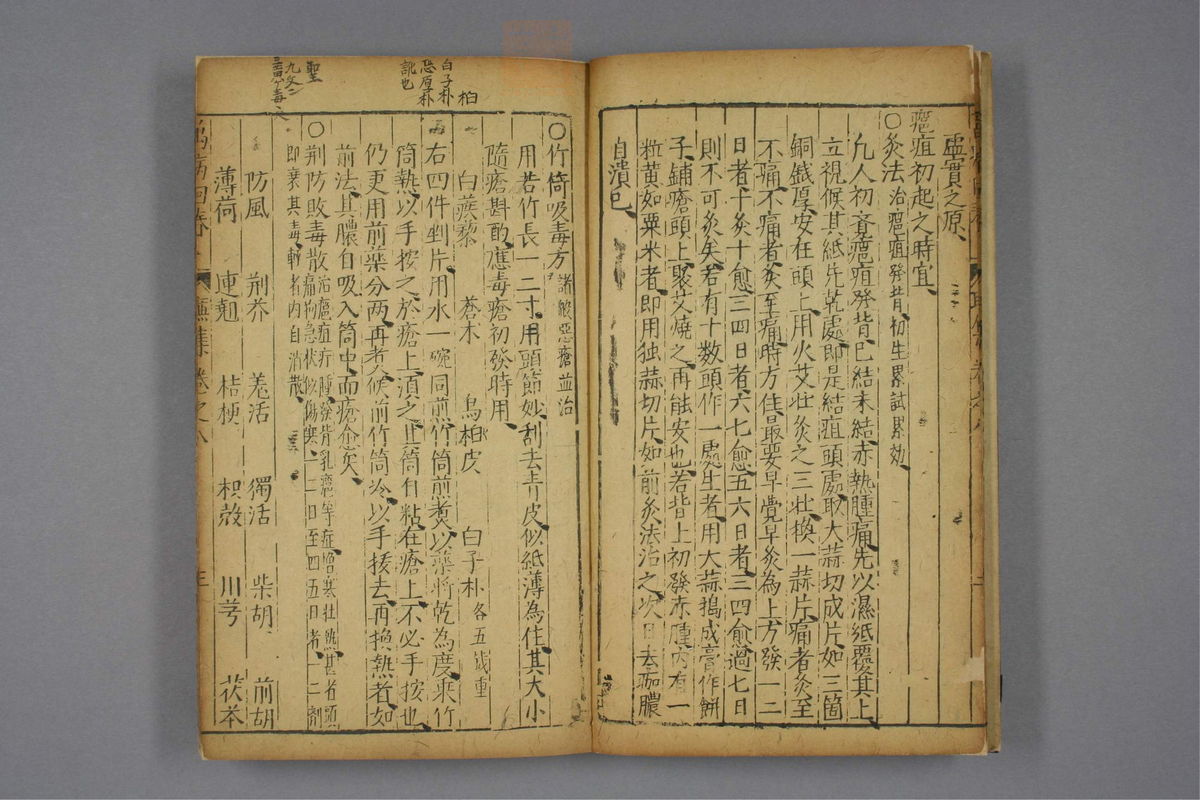 虛實之原、
癰疽初起之時宜
○灸法治癰疽發背初生累試累効
凡人初發癰疽發背已結未結赤熱腫痛先以濕紙覆其上
立視候其紙先乾處即是結疽頭處取大蒜切成片如三箇
銅錢厚安在頭上用火艾壯灸之三壯換一蒜片痛者灸至
不痛不痛者灸至痛時方住最要早覺早灸為上方發一二
日者十灸十愈三四日者六七愈五六日者三四愈過七日
則不可灸矣若有十數頭作一處生者用大蒜搗成膏作餅
子鋪瘡頭上聚艾燒之再能安也若背上初發赤腫內有一
粒黃如粟米者即用独蒜切片如前灸法治之次日去痂膿
自潰已
柏
白子朴
恐厚朴
訛也
聖
○竹筒吸毒方諸般惡瘡並治
用苦竹長一二寸用頭節妙刮去青皮似紙薄為住其大小
隨瘡斟酌應毒瘡初發時用
白蒺藜 蒼朮 烏柏皮 白子朴各五錢重
右四件剉片用水一碗同煎竹筒煎煑以藥將乾為度乘竹
筒熱以手按之於瘡上湏之其筒自粘在瘡上不必手按也
仍更用前藥分兩再煑候前竹筒冷以手拔去再換熱者如
前法其膿自吸入筒中而瘡愈矣
○荊防敗毒散治癰疽疔腫發背乳癰等症憎寒壯熱甚者頭
痛拘急狀似傷寒一二日至四五日者一二劑
即衰其毒輕者內自消散
防風 荊芥 羗活 獨活 柴胡 前胡
薄荷 連翹 桔梗 枳殼 川芎 茯苓
萬病回春 卷之八